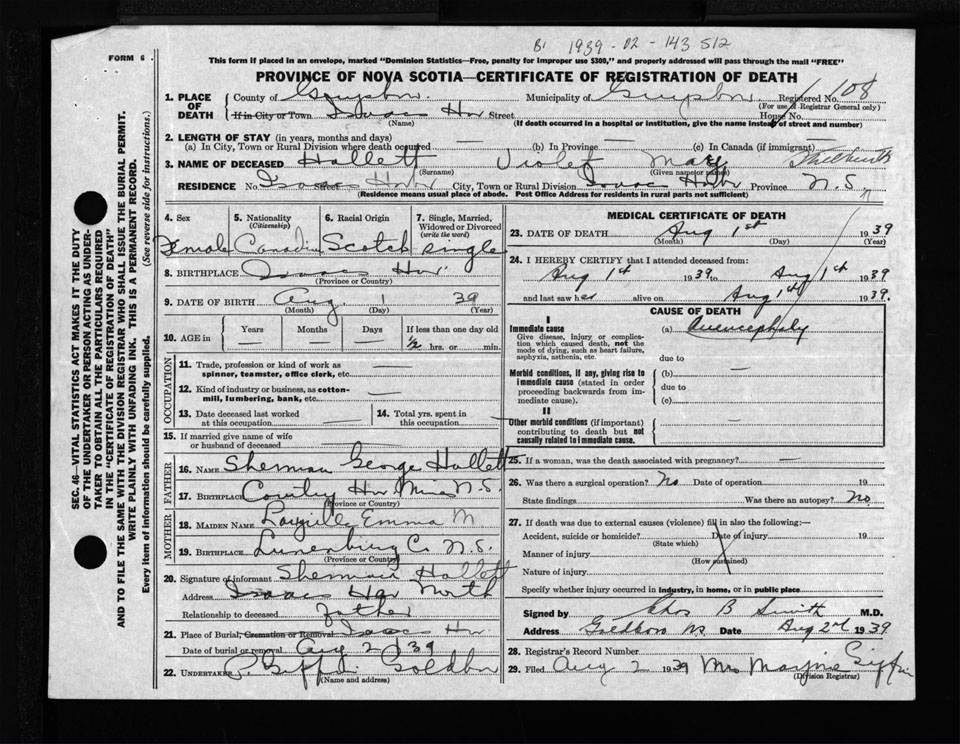 B. 1939 - 02 - 143 512
FORM 6.
This form if placed in an envelope, marked "Dominion Statistics—Free, penalty for improper use $300," and properly addressed will pass through the mail "FREE"
PROVINCE OF NOVA SCOTIA—CERTIFICATE OF REGISTRATION OF DEATH
SEC. 46—VITAL STATISTICS ACT MAKES IT THE DUTY
OF THE UNDERTAKER OR PERSON ACTING AS UNDER-
TAKER TO OBTAIN ALL THE PARTICULARS REQUIRED
IN THE "CERTIFICATE OF REGISTRATION OF DEATH"
AND TO FILE THE SAME WITH THE DIVISION REGISTRAR WHO SHALL ISSUE THE BURIAL PERMIT.
WRITE PLAINLY WITH UNFADING INK. THIS IS A PERMANENT RECORD.
Every item of information should be carefully supplied. (See reverse side for instructions.)
1. PLACE OF DEATH County of Guysboro. Municipality of Guysboro Registered No. 108
(For use of Registrar General only)
If in City or Town Isaacs Hr Street House No.
(Name) (If death occurred in a hospital or institution, give the name instead of street and number)
2. LENGTH OF STAY (in years, months and days)
(a) In City, Town or Rural Division where death occurred — (b) In Province — (c) In Canada (if immigrant)
3. NAME OF DECEASED Hallett Violet Mary
(Surname) (Given name or names)
RESIDENCE No. Isaacs Street Harbr City, Town or Rural Division Isaacs Harbr Province N.S.
(Residence means usual place of abode. Post Office Address for residents in rural parts not sufficient)
4. Sex 5. Nationality (Citizenship) 6. Racial Origin 7. Single, Married, Widowed or Divorced (write the word)
Female Canadian Scotch single
8. BIRTHPLACE Isaacs Hr.
(Province or Country)
9. DATE OF BIRTH Aug 1 39
(Month) (Day) (Year)
10. AGE in Years Months Days If less than one day old
— — — ½ hrs. or min.
OCCUPATION
11. Trade, profession or kind of work as spinner, teamster, office clerk, etc. —
12. Kind of industry or business, as cotton-mill, lumbering, bank, etc. —
13. Date deceased last worked at this occupation — 14. Total yrs. spent in this occupation —
15. If married give name of wife or husband of deceased
FATHER
16. NAME Sherman George Hallett
17. BIRTHPLACE Country Hr Mines N.S.
(Province or Country)
MOTHER
18. MAIDEN NAME Emma M
19. BIRTHPLACE Lunenburg Co. N.S.
(Province or Country)
20. Signature of informant Sherman Hallett
Address Isaacs Har North
Relationship to deceased father
21. Place of Burial, Cremation or Removal Isaacs Hr
Date of burial or removal Aug 2 1939
22. UNDERTAKER P. Giffin Goldbor
(Name and address)
MEDICAL CERTIFICATE OF DEATH
23. DATE OF DEATH Aug 1st 1939
(Month) (Day) (Year)
24. I HEREBY CERTIFY that I attended deceased from:
Aug 1st 1939 to Aug 1st 1939
and last saw her alive on Aug 1st 1939.
CAUSE OF DEATH
I
Immediate cause (a) Anencephaly
Give disease, injury or complication which caused death, not the mode of dying, such as heart failure, asphyxia, asthenia, etc.
due to
Morbid conditions, if any, giving rise to immediate cause (stated in order proceeding backwards from immediate cause). (b) —
due to
(c)
II
Other morbid conditions (if important) contributing to death but not causally related to immediate cause. —
25. If a woman, was the death associated with pregnancy? —
26. Was there a surgical operation? No Date of operation 19
State findings Was there an autopsy? No
27. If death was due to external causes (violence) fill in also the following:—
Accident, suicide or homicide? Date of injury 19
(State which)
Manner of injury
(How sustained)
Nature of injury
Specify whether injury occurred in industry, in home, or in public place
Signed by Chas B Smith M.D.
Address Goldboro NS Date Aug 2nd 1939
28. Registrar's Record Number
29. Filed Aug 2 1939 Mrs Marjorie Giffin
(Division Registrar)